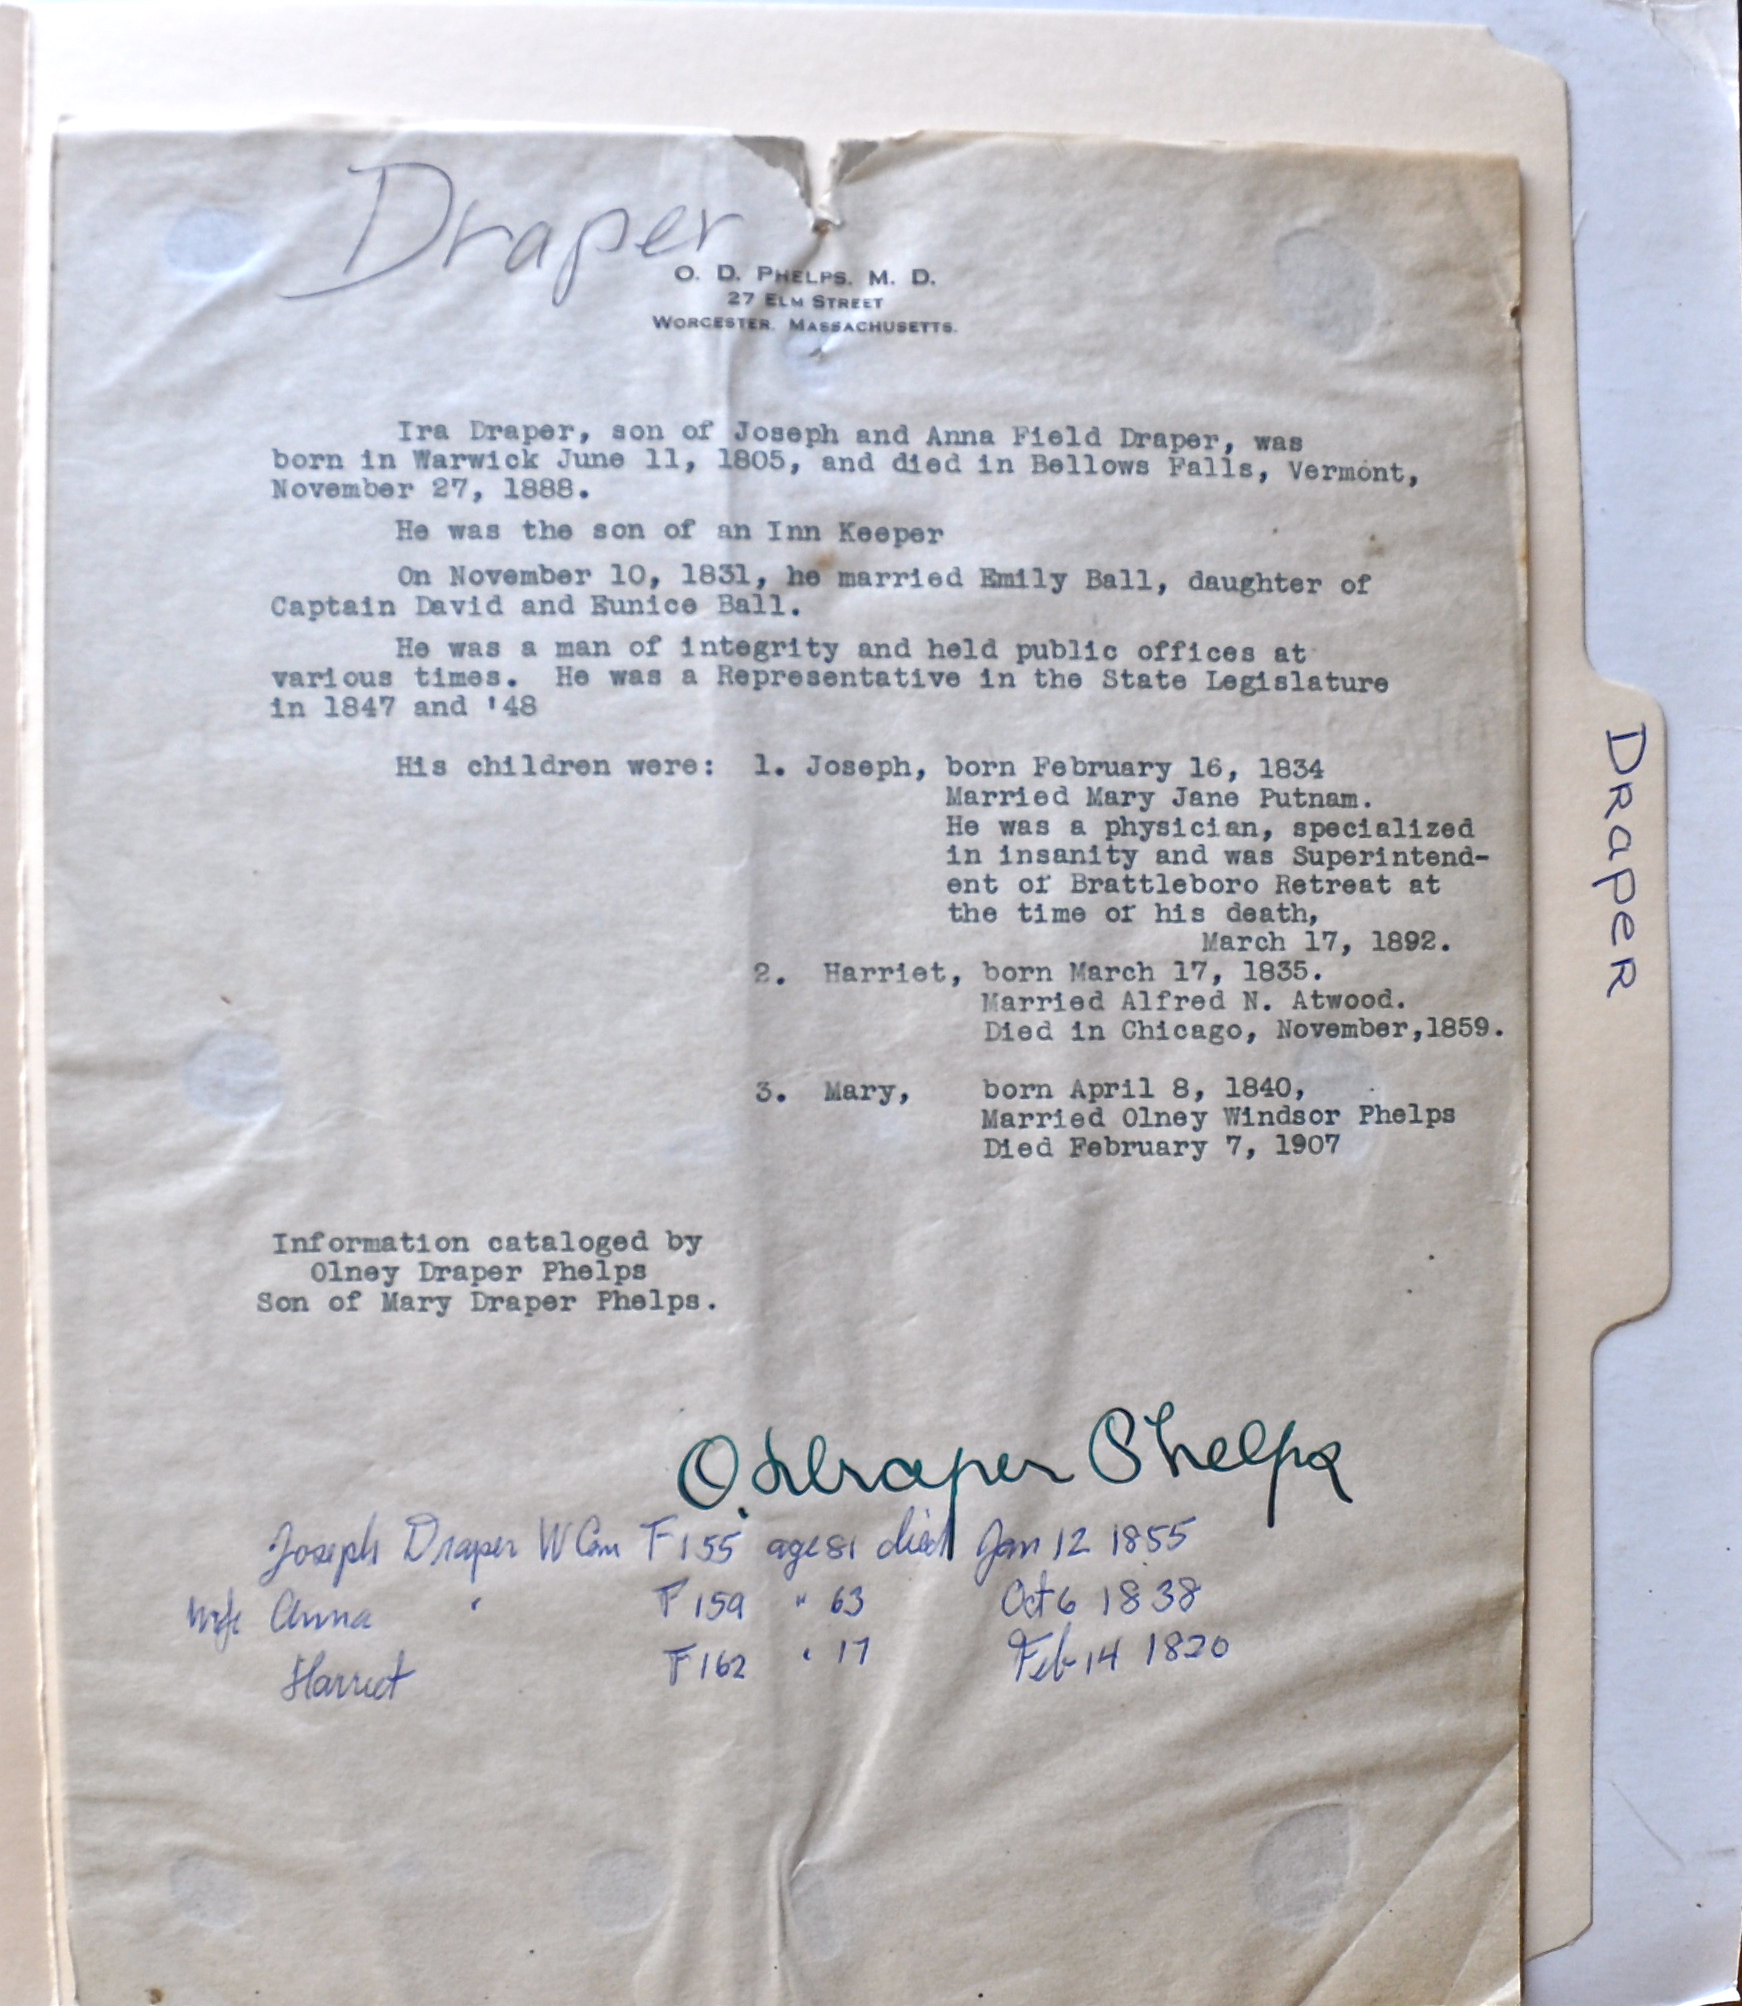 Draper
O. D. PHELPS, M. D.
27 ELM STREET
WORCESTER, MASSACHUSETTS.
Ira Draper, son of Joseph and Anna Field Draper, was
born in Warwick June 11, 1805, and died in Bellows Falls, Vermont,
November 27, 1888.
He was the son of an Inn Keeper
On November 10, 1831, he married Emily Ball, daughter of
Captain David and Eunice Ball.
He was a man of integrity and held public offices at
various times. He was a Representative in the State Legislature
in 1847 and '48
His children were: 1. Joseph, born February 16, 1834
Married Mary Jane Putnam.
He was a physician, specialized
in insanity and was Superintend-
ent of Brattleboro Retreat at
the time of his death,
March 17, 1892.
2. Harriet, born March 17, 1835.
Married Alfred N. Atwood.
Died in Chicago, November,1859.
3. Mary, born April 8, 1840,
Married Olney Windsor Phelps
Died February 7, 1907
Information cataloged by
Olney Draper Phelps
Son of Mary Draper Phelps.
O. Draper Phelps
Joseph Draper W Cem F155 age 81 died Jan 12 1855
wife Anna " F159 " 63 Oct 6 1838
Harriet F162 " 17 Feb 14 1820
DRaPeR